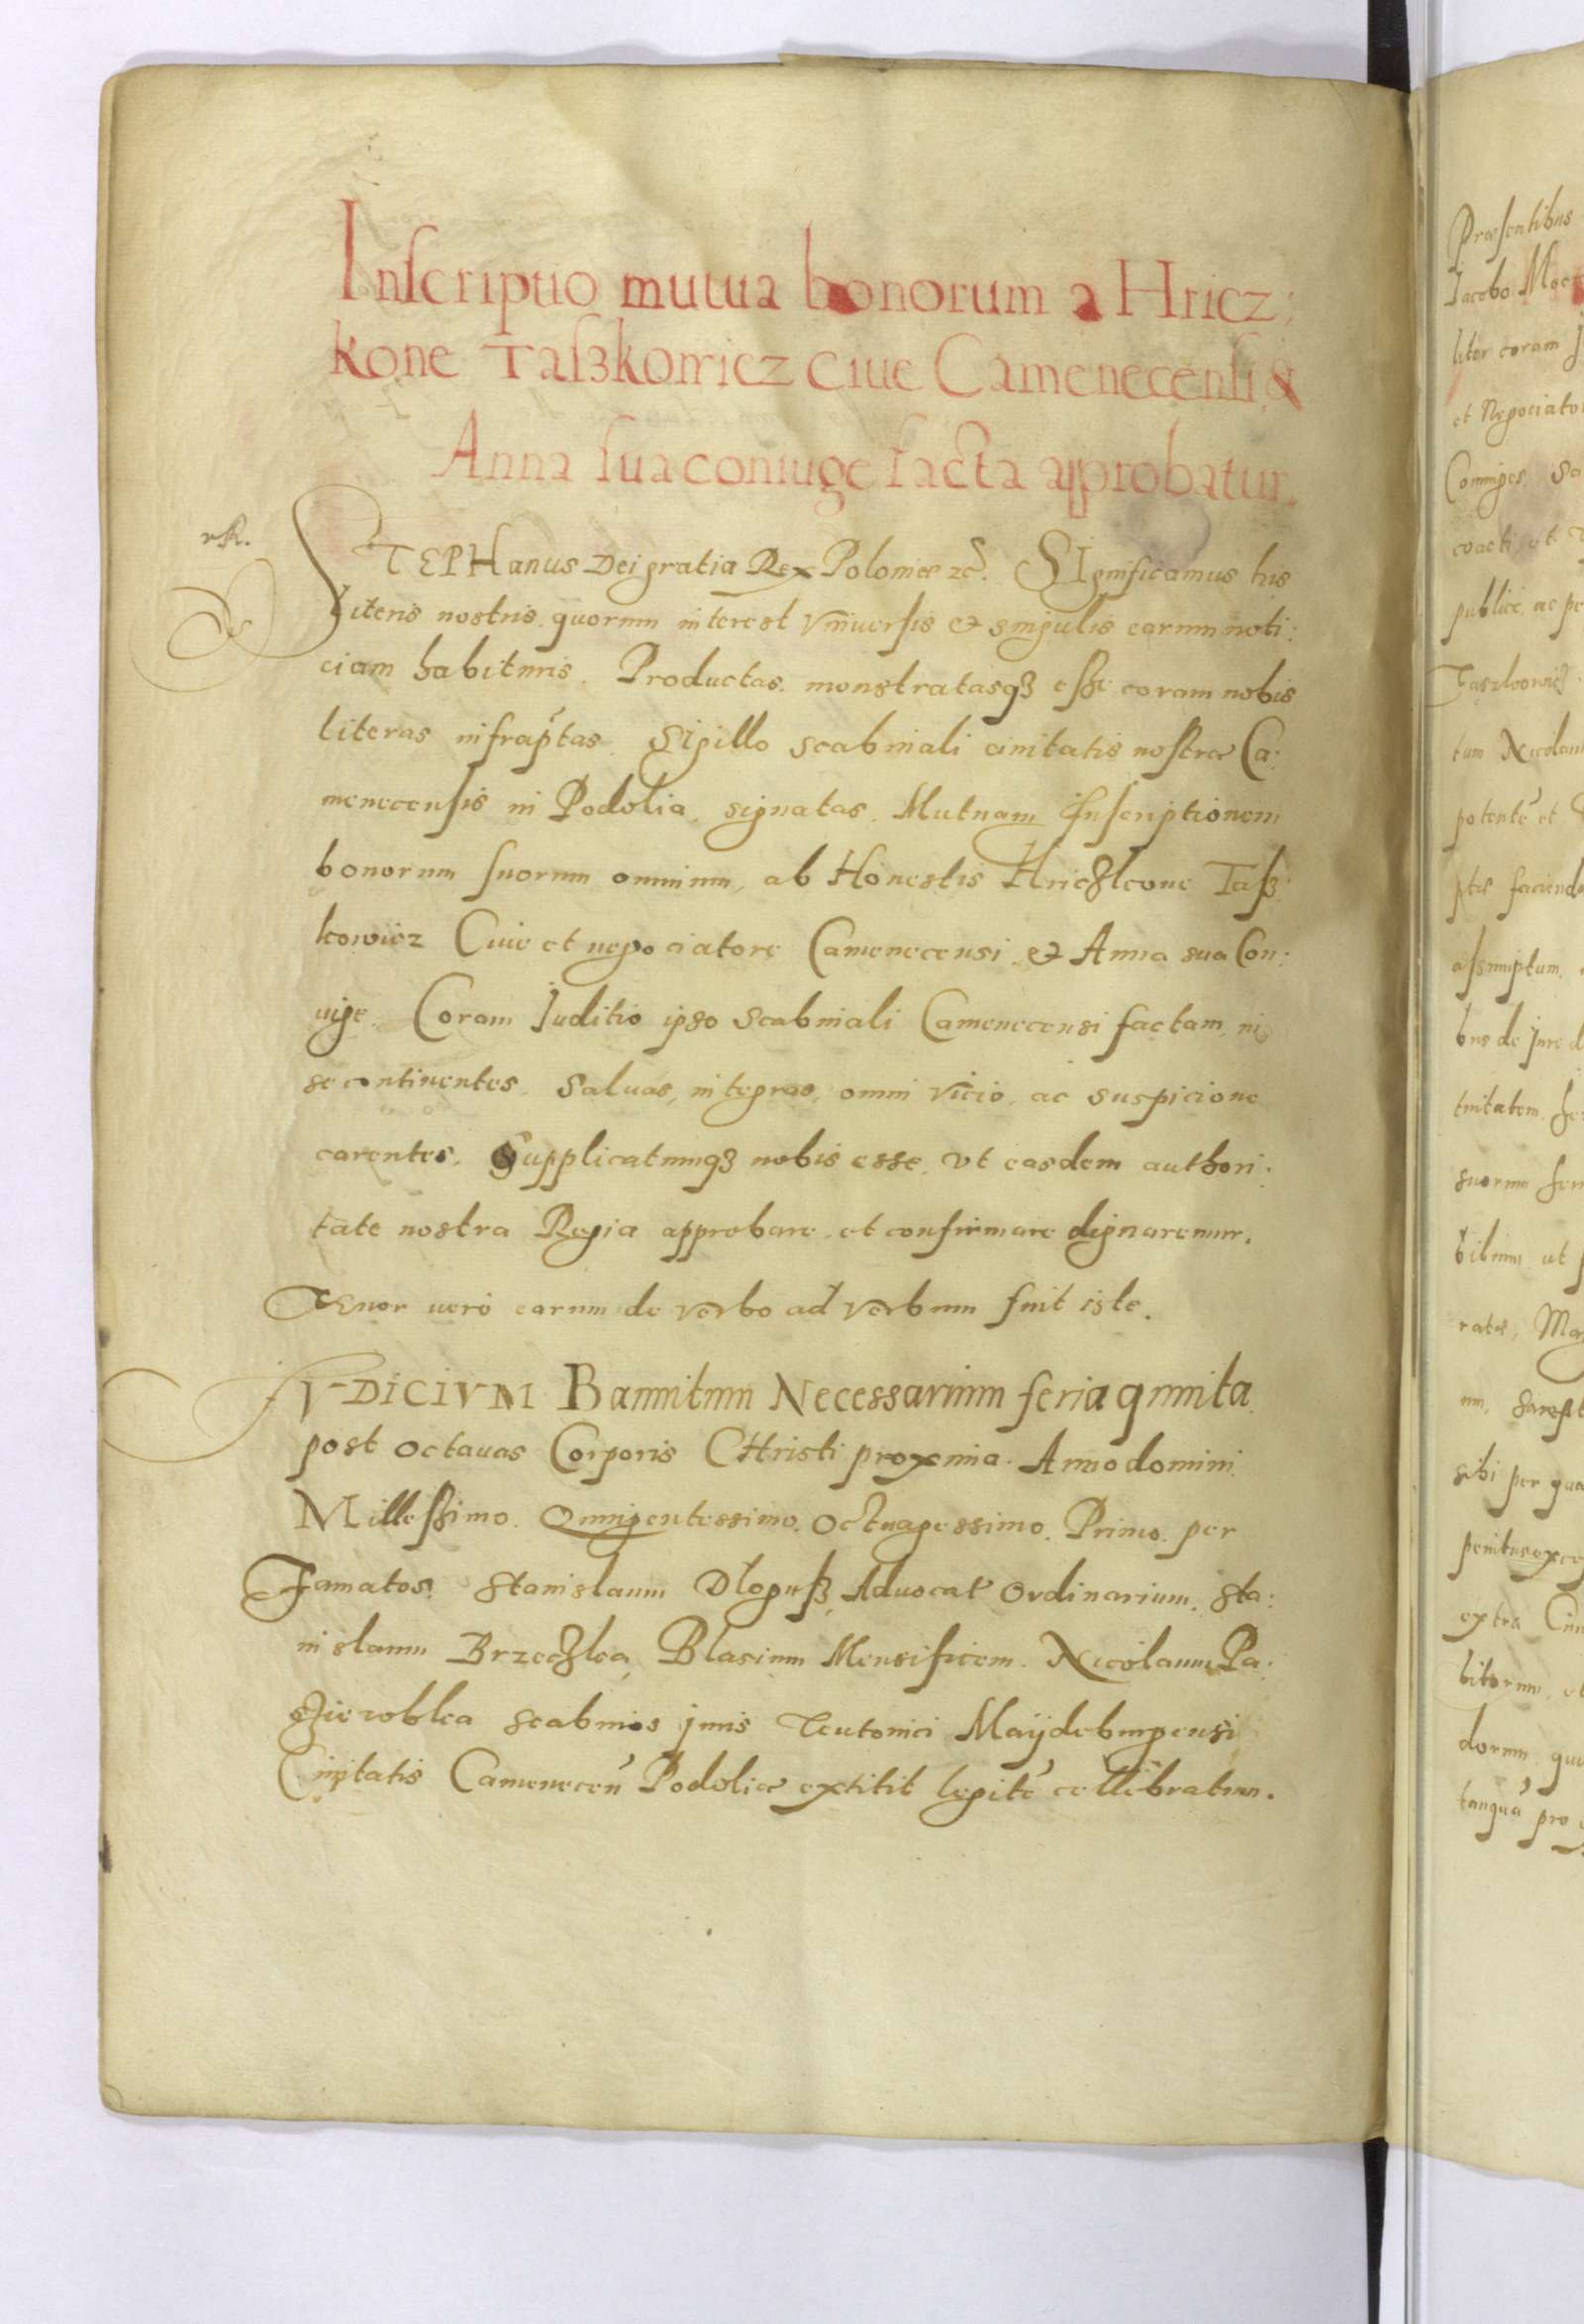 Inscriptio mutua bonorum a Hricz:
kone Taszkowicz ciue Camenecensi &
Anna sua coniuge facta approbatur.
STEPHanus Dei gratia Rex Poloniæ zc. SIgnificamus his
literis nostris quorum interest Vniuersis et singulis earum noti:
ciam habituris. Productas monstratasqȝ esse coram nobis
literas infraptas. Sigillo Scabinali ciuitatis nostræ Ca:
menecensis in Podolia signatas. Mutuam Inscriptionem
bonorum suorum omnium, ab Honestis Hriczkone Tasz:
kowicz Ciue et negociatore Camenecensi et Anna sua Con:
iuge. Coram Juditio ipso Scabinali Camenecensi factam, in
se continentes. Saluas, integras, omni vicio, ac suspicione
carentes. Supplicatumqȝ nobis esse, vt easdem authori:
tate nostra Regia approbare et confirmare dignaremur.
Tenor uero earum de verbo ad verbum fuit iste.
IVDICIVM Bannitum Necessarium feria quinta
post octauas Corporis CHristi proxima. Anno domini
Millessimo. Quingentessimo. Octuagessimo. Primo. per
Famatos. Stanislaum Dlogusz Aduocat Ordinarium. Sta:
nislaum Brzeczka, Blasium Mensificem. Nicolaum Pa:
zieroblka scabinos juris Teutonici Maijdeburgensi
Ciuitatis Cameneceñ Podoliæ extitit legite cellebratum.
Præsentibus
Jacobo
liter coram
et Negociator
Coniuges
coacti, ut
publice, ac pe
Taszkowicz
tum Nicolaum
potente et
ptis faciend
assumptum
bus de jure d
tuitatem
suorum
bilium ut
ratas, Ma
sibi per qua
penitus exce
extra Ciu
bitorum, et
dorum, qu
tanqua pro